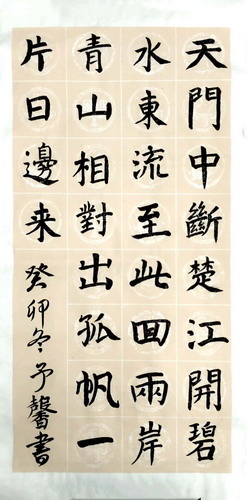 天門中斷楚江開碧
水東流至此回兩岸
青山相對出孤帆一
片日邊来
癸卯冬予馨書